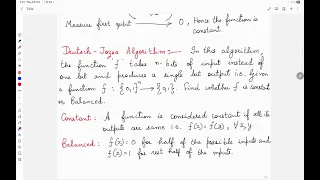 Measure first qubit → 0, Hence the function is
constant.
Deutsch-Jozsa Algorithm:- In this algorithm,
the function 'f' takes n-bits of input instead of
one bit and produces a single bit output i.e. Given
a function f : {0,1}ⁿ → {0,1}. Find whether f is constant
or Balanced.
Constant: A function is considered constant if all its
outputs are same i.e. f(x) = f(y), ∀ x,y
Balanced: f(x)=0 for half of the possible inputs and
f(x)=1 for rest half of the inputs.